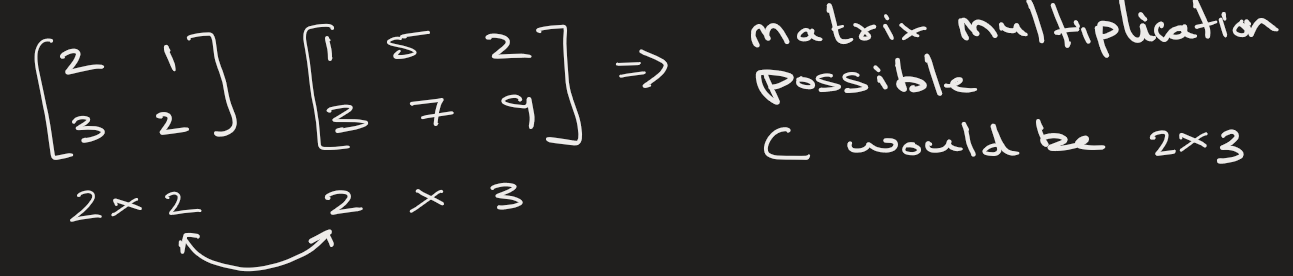 [2 1] [1 5 2] ⇒ matrix multiplication
[3 2] [3 7 9] possible
C would be 2×3
2×2 2 × 3